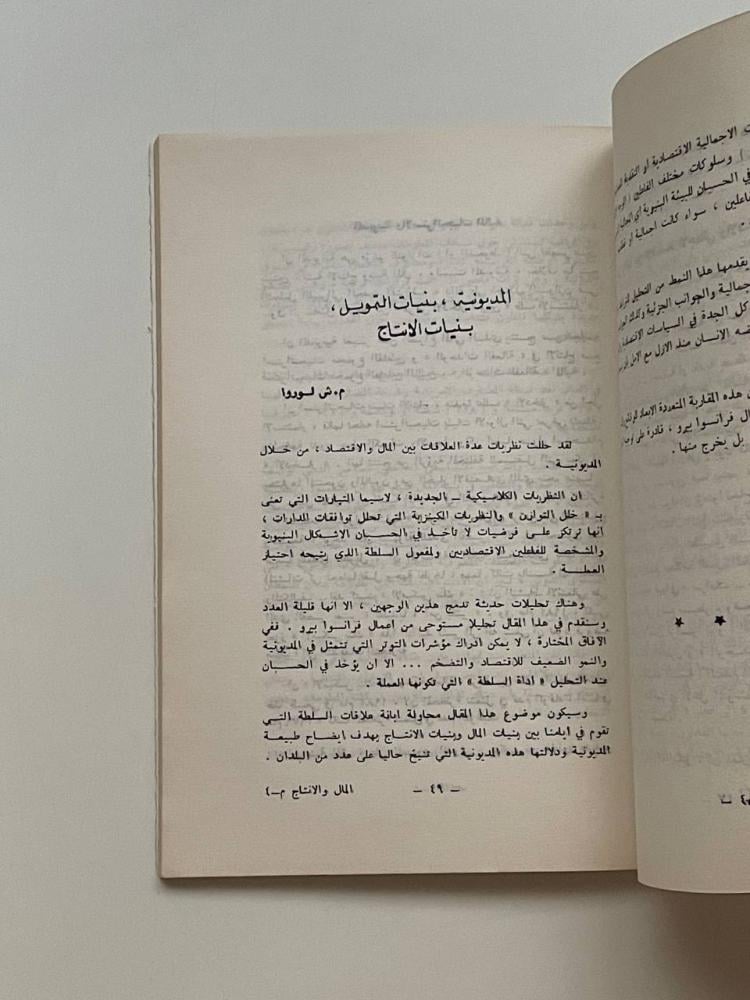 المديونية ، بنيات التمويل ،
بنيات الانتاج
م.ش لوروا
لقد حللت نظريات عدة العلاقات بين المال والاقتصاد ، من خلال
المديونية .
ان النظريات الكلاسيكية ــ الجديدة ، لاسيما التيارات التي تعنى
بـ « خلل التوازن » والنظريات الكينزية التي تحلل توافقات المدارات ،
انها ترتكز على فرضيات لا تأخذ في الحسبان الاشكال البنيوية
والمشخصة للفاعلين الاقتصاديين ولمفعول السلطة الذي يتيحه احتيار
العملة .
وهناك تحليلات حديثة تدمج هذين الوجهين ، الا انها قليلة العدد
وسنقدم في هذا المقال تحليلا مستوحى من اعمال فرانسوا بيرو . ففي
الآفاق المختارة ، لا يمكن ادراك مؤشرات التوتر التي تتمثل في المديونية
والنمو الضعيف للاقتصاد والتضخم ... الا ان يؤخذ في الحسبان
عند التحليل « اداة السلطة » التي تكونها العملة .
وسيكون موضوع هذا المقال محاولة ابانة علاقات السلطة التي
تقوم في ايامنا بين بنيات المال وبنيات الانتاج بهدف ايضاح طبيعة
المديونية ودلالتها هذه المديونية التي تنيخ حاليا على عدد من البلدان .
ــ ٤٩ ــ
المال والانتاج م ــ ٤
الاجمالية الاقتصادية او النقدية
وسلوكات مختلف الفاعلين
في الحسبان للبيئة البنيوية أي
سواء كانت اجمالية او
يقدمها هذا النمط من التحليل
والجوانب الجزئية ولذلك
كل الجدة في السياسات الاقتصادية
الانسان منذ الازل مع الامل
هذه المقاربة المتعددة الابعاد
فرانسوا بيرو ، قادرة على
بل يخرج منها .